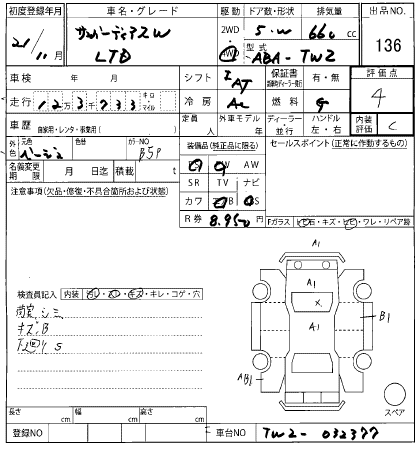 初度登録年月 車名・グレード 駆動 ドア数・形状 排気量 出品NO.
21/11月 サンバーディアスW LTD 2WD 4WD 5・W 660 cc 136
型式 ABA-TW2
車検 年 月 シフト IAT 保証書 有・無 評価点 4
走行 123733 キロ マイル 冷房 AC 燃料 G
車歴 自家用・レンタ・事業用( ) 定員 人 外車モデル 年 ディーラー 並行 ハンドル 左・右 内装評価 C
外色 元色 ベージュ 色替 カラーNO B59 装備品(純正品に限る) セールスポイント(正常に作動するもの)
PW AW
名義変更期限 月 日迄 積載 t SR TV ナビ
注意事項(欠品・修復・不具合箇所および状態) カワ
R券 8,950
Fガラス ヒビ石・キズ・ヒビ・ワレ・リペア跡
A1
A1
X
A1
B1
AB1
スペア
検査員記入 内装 ・キレ・コゲ・穴
シミ
キズ、B
長さ cm 幅 cm 高さ cm
登録NO 車台NO TW2-032377